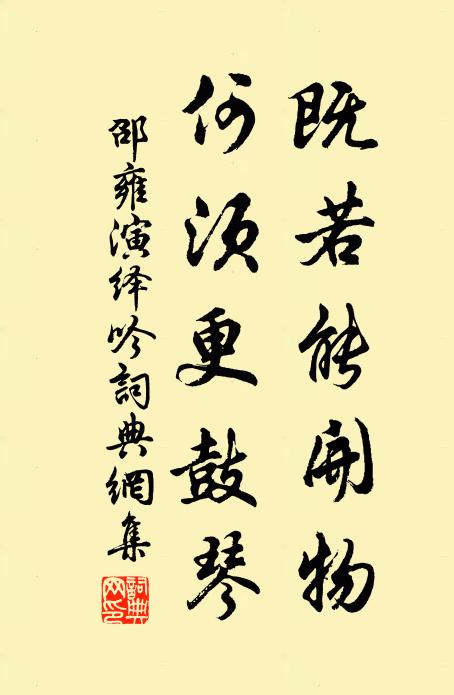 既若能開物
何須更鼓琴
邵雍演绎吟詞典網集
詞典網印